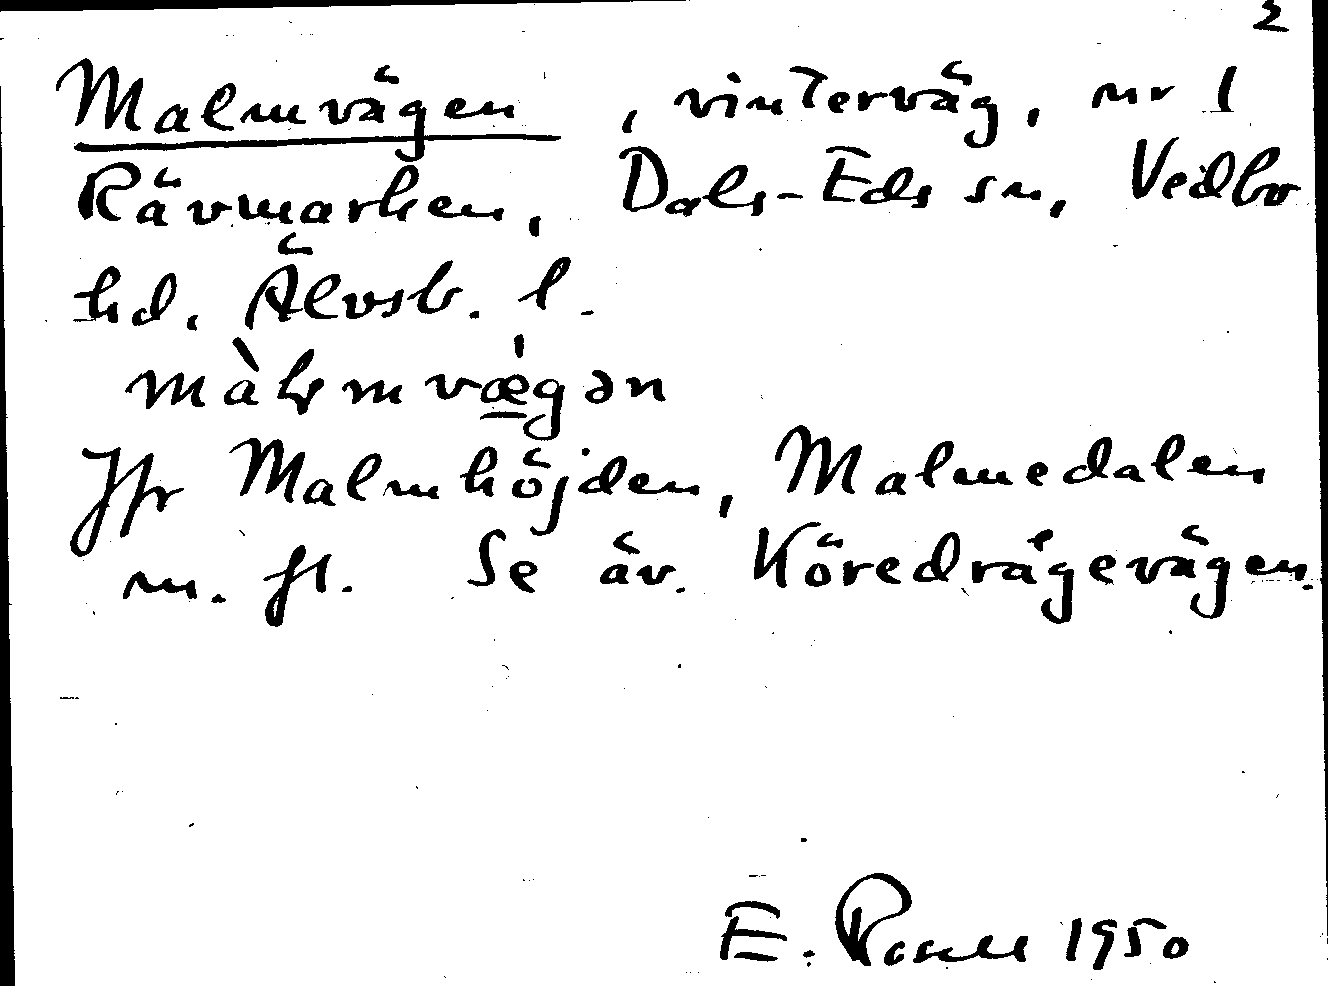 2
Malmvägen, vinterväg, nr 1
Rävmarken, Dals-Eds sn, Vedbo
hd. Älvsb. l.
màl̥mvæ̱gən
Jfr Malmhöjden, Malmedalen
m. fl. Se äv. Köredrågevägen.
E. Rosell 1950